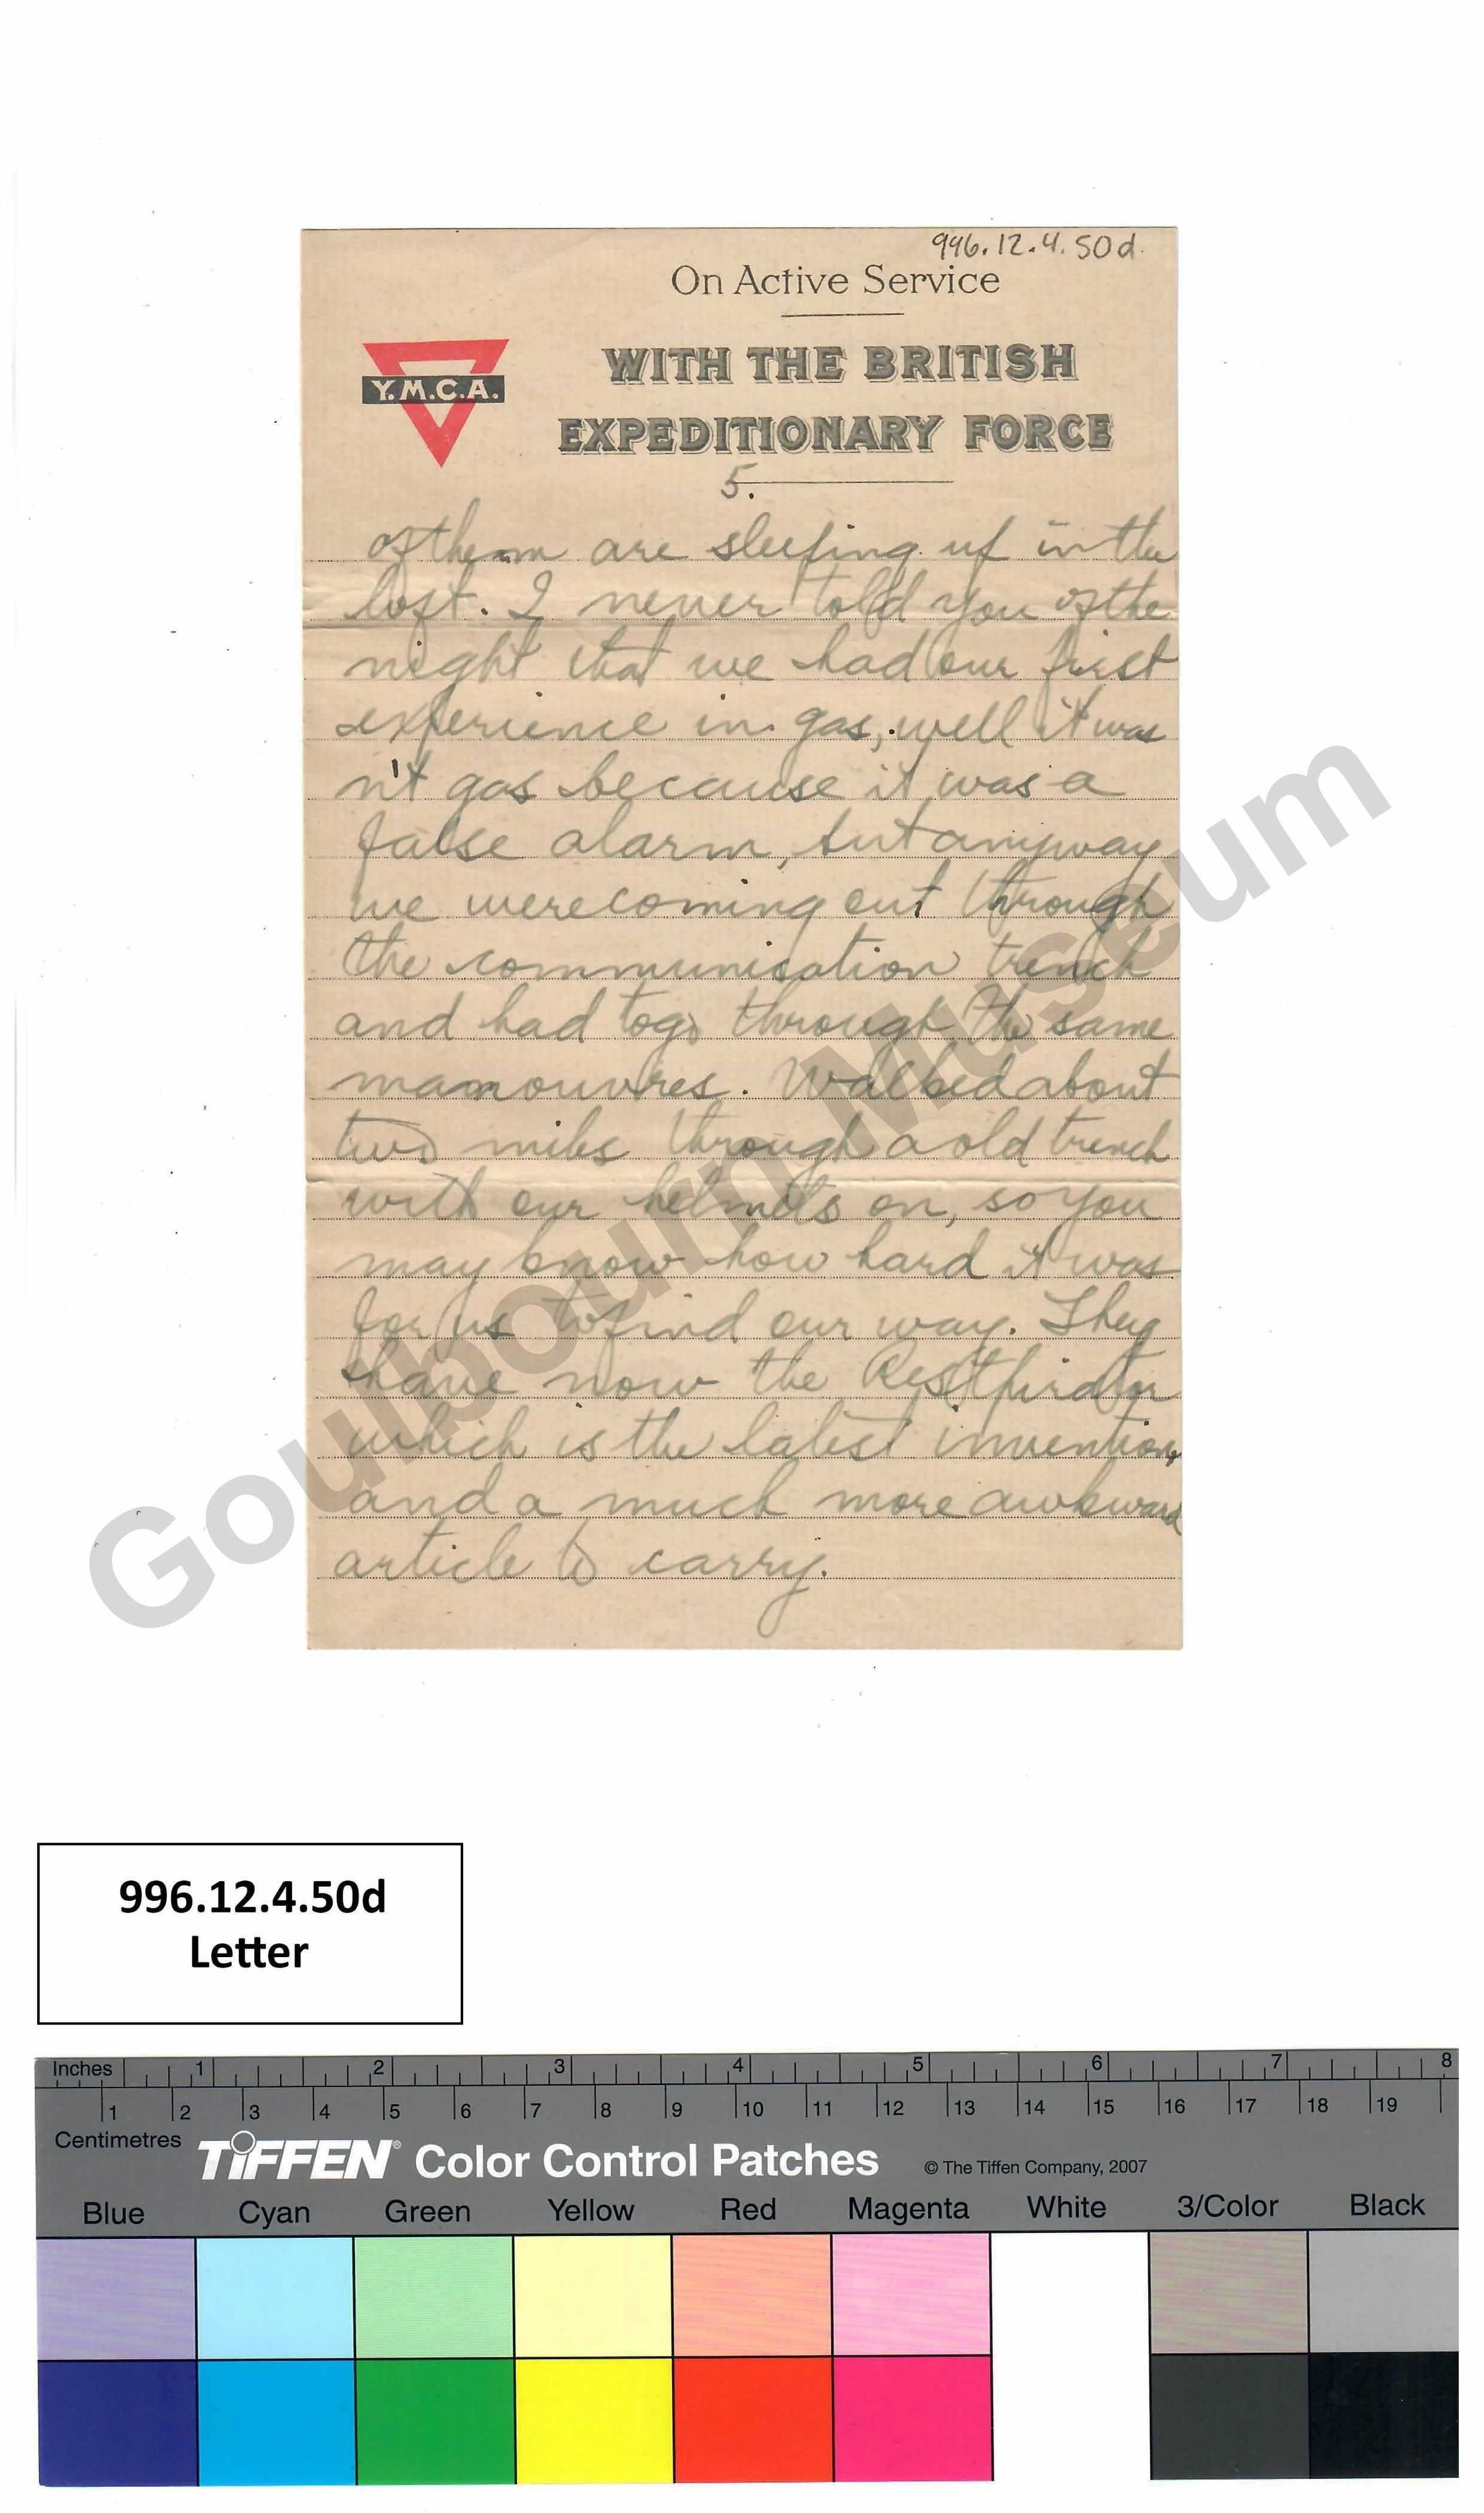 996.12.4.50d.
On Active Service
Y.M.C.A.
WITH THE BRITISH
EXPEDITIONARY FORCE
5.
of them are sleeping up in the
loft. I never told you of the
night that we had our first
experience in gas, well it was
n't gas because it was a
false alarm, but anyway
we were coming out through
the communication trench
and had to go through the same
manouvres. Walked about
two miles through a old trench
with our helmets on, so you
may know how hard it was
for us to find our way. They
have now the
which is the latest invention,
and a much more awkward
article to carry.
Goulbourn Museum
996.12.4.50d
Letter
Inches 1 2 3 4 5 6 7 8
1 2 3 4 5 6 7 8 9 10 11 12 13 14 15 16 17 18 19
Centimetres
TIFFEN® Color Control Patches © The Tiffen Company, 2007
Blue Cyan Green Yellow Red Magenta White 3/Color Black